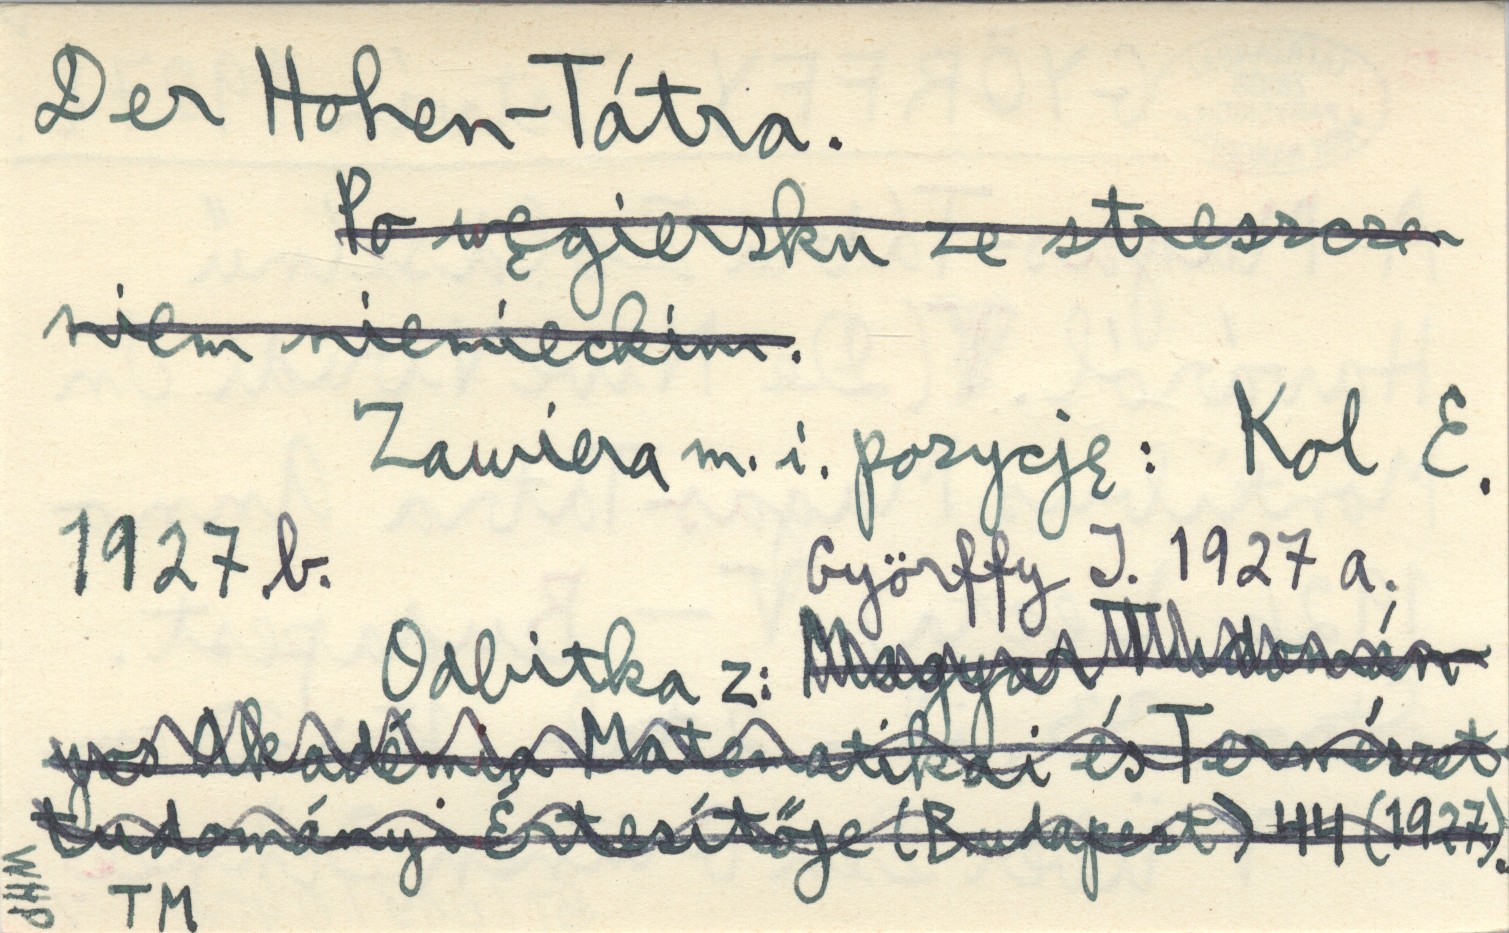 Der Hohen-Tátra.
Po węgiersku ze streszcze
niem niemieckim.
Zawiera m. i. pozycję: Kol E.
1927 b. Györffy I. 1927 a.
Odbitka z: Magyar Tudomán
yos Akadémia Matematikai és Természet
tudományi Értesítője (Budapest) 44 (1927).
WHP
TM